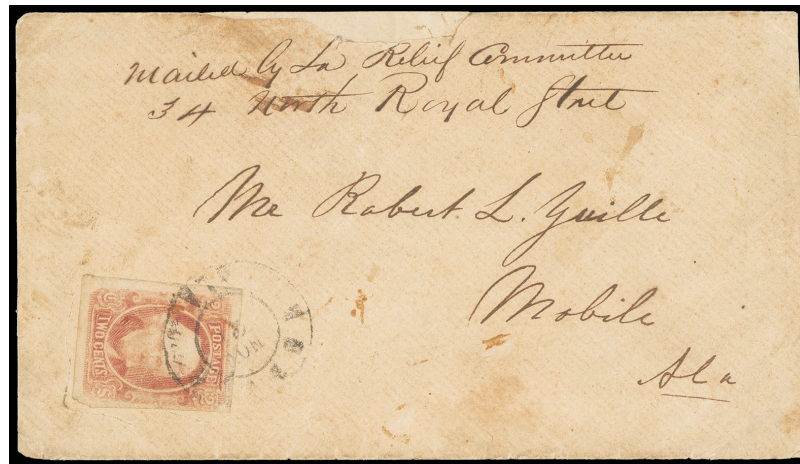 Mailed by La Relief Committee
34 North Royal Street
Mr Robert L. Yuille
Mobile
Ala
POSTAGE
TWO CENTS
NOV